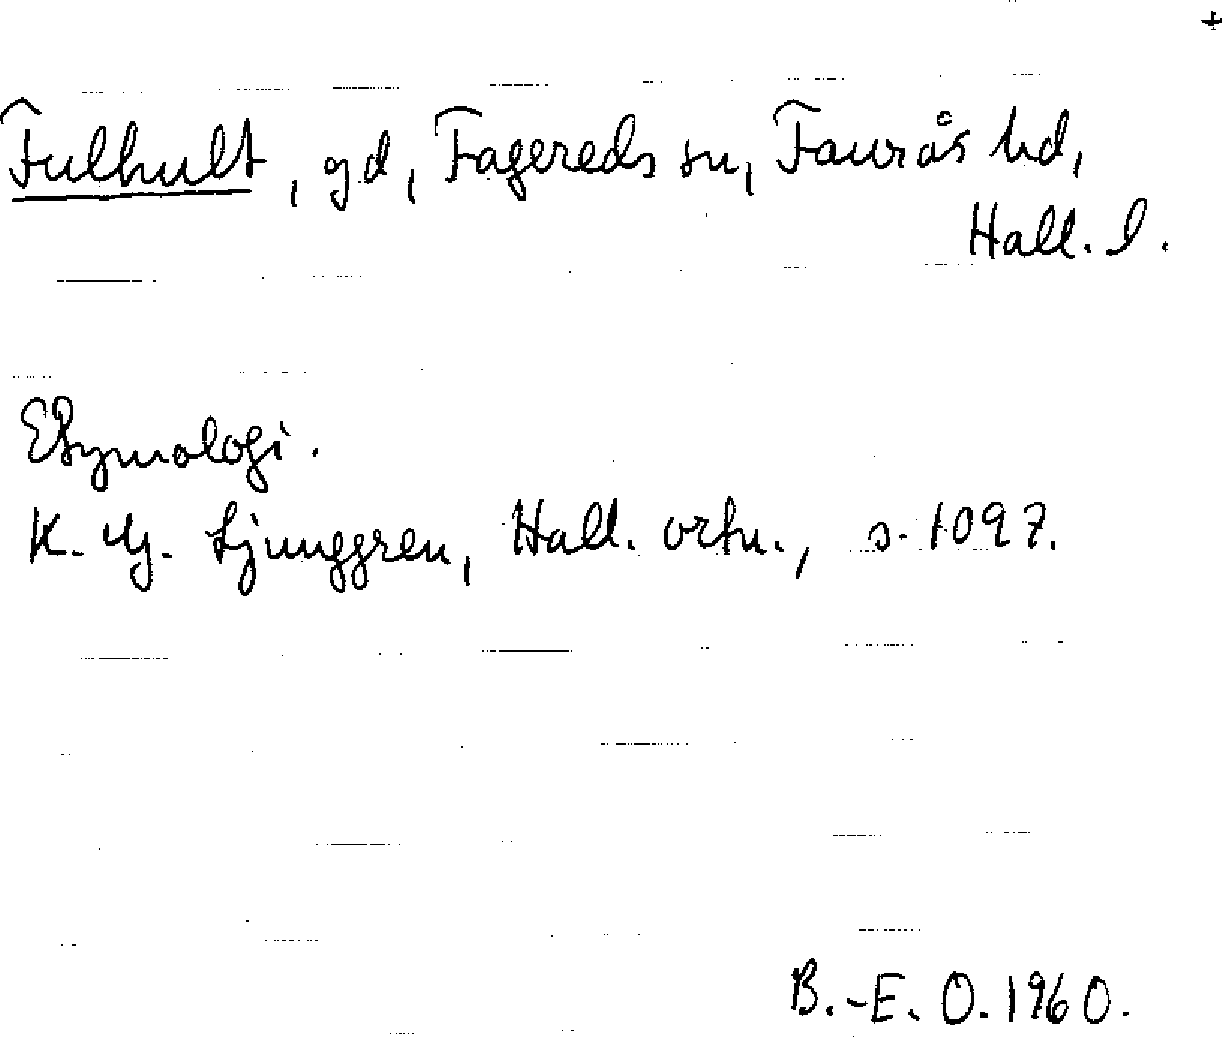 +
Fulhult, gd, Fagereds sn, Faurås hd,
Hall. l.
Etymologi.
K. G. Ljunggren, Hall. ortn., s. 1097.
B.-E. O. 1960.